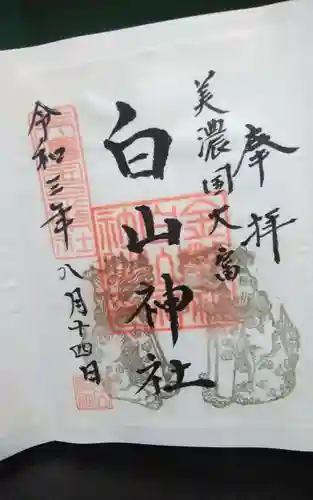 奉拝
美濃国大富
白山神社
令和三年八月十四日